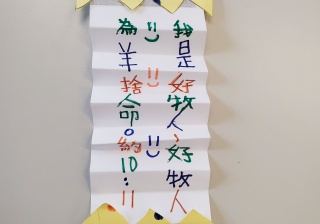 我是好牧人，好牧人
為羊捨命。約10：11